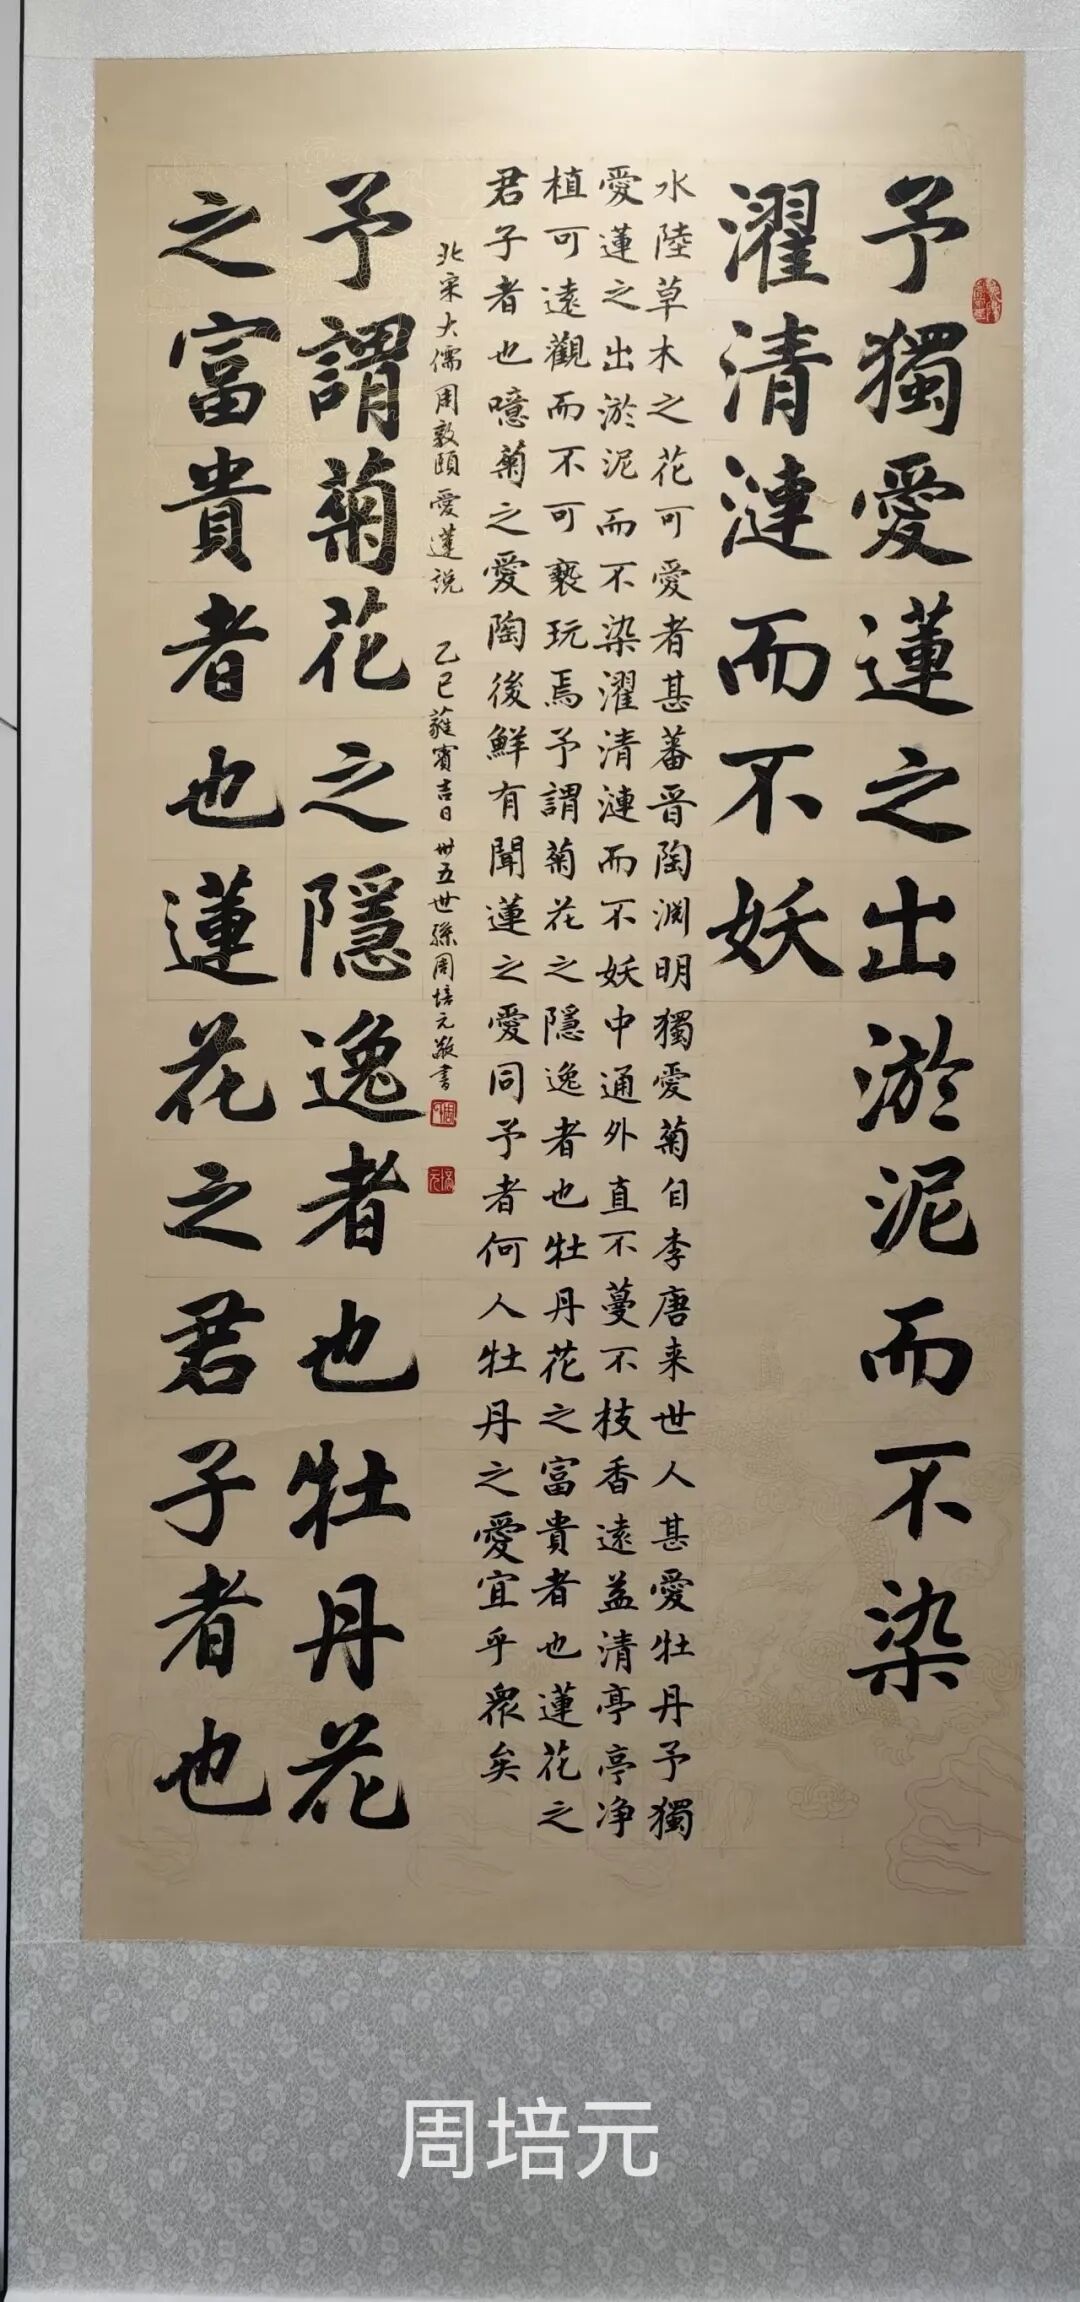 予獨愛蓮之出淤泥而不染
濯清漣而不妖
水陸草木之花可愛者甚蕃晉陶渊明獨愛菊自李唐来世人甚愛牡丹予獨
愛蓮之出淤泥而不染濯清漣而不妖中通外直不蔓不枝香遠益清亭亭净
植可遠觀而不可褻玩焉予謂菊花之隱逸者也牡丹花之富貴者也蓮花之
君子者也噫菊之愛陶後鮮有聞蓮之愛同予者何人牡丹之愛宜乎衆矣
北宋大儒周敦頤愛蓮説 乙巳蕤賓吉日 卅五世孫周培元敬書
予謂菊花之隱逸者也牡丹花
之富貴者也蓮花之君子者也
周培元